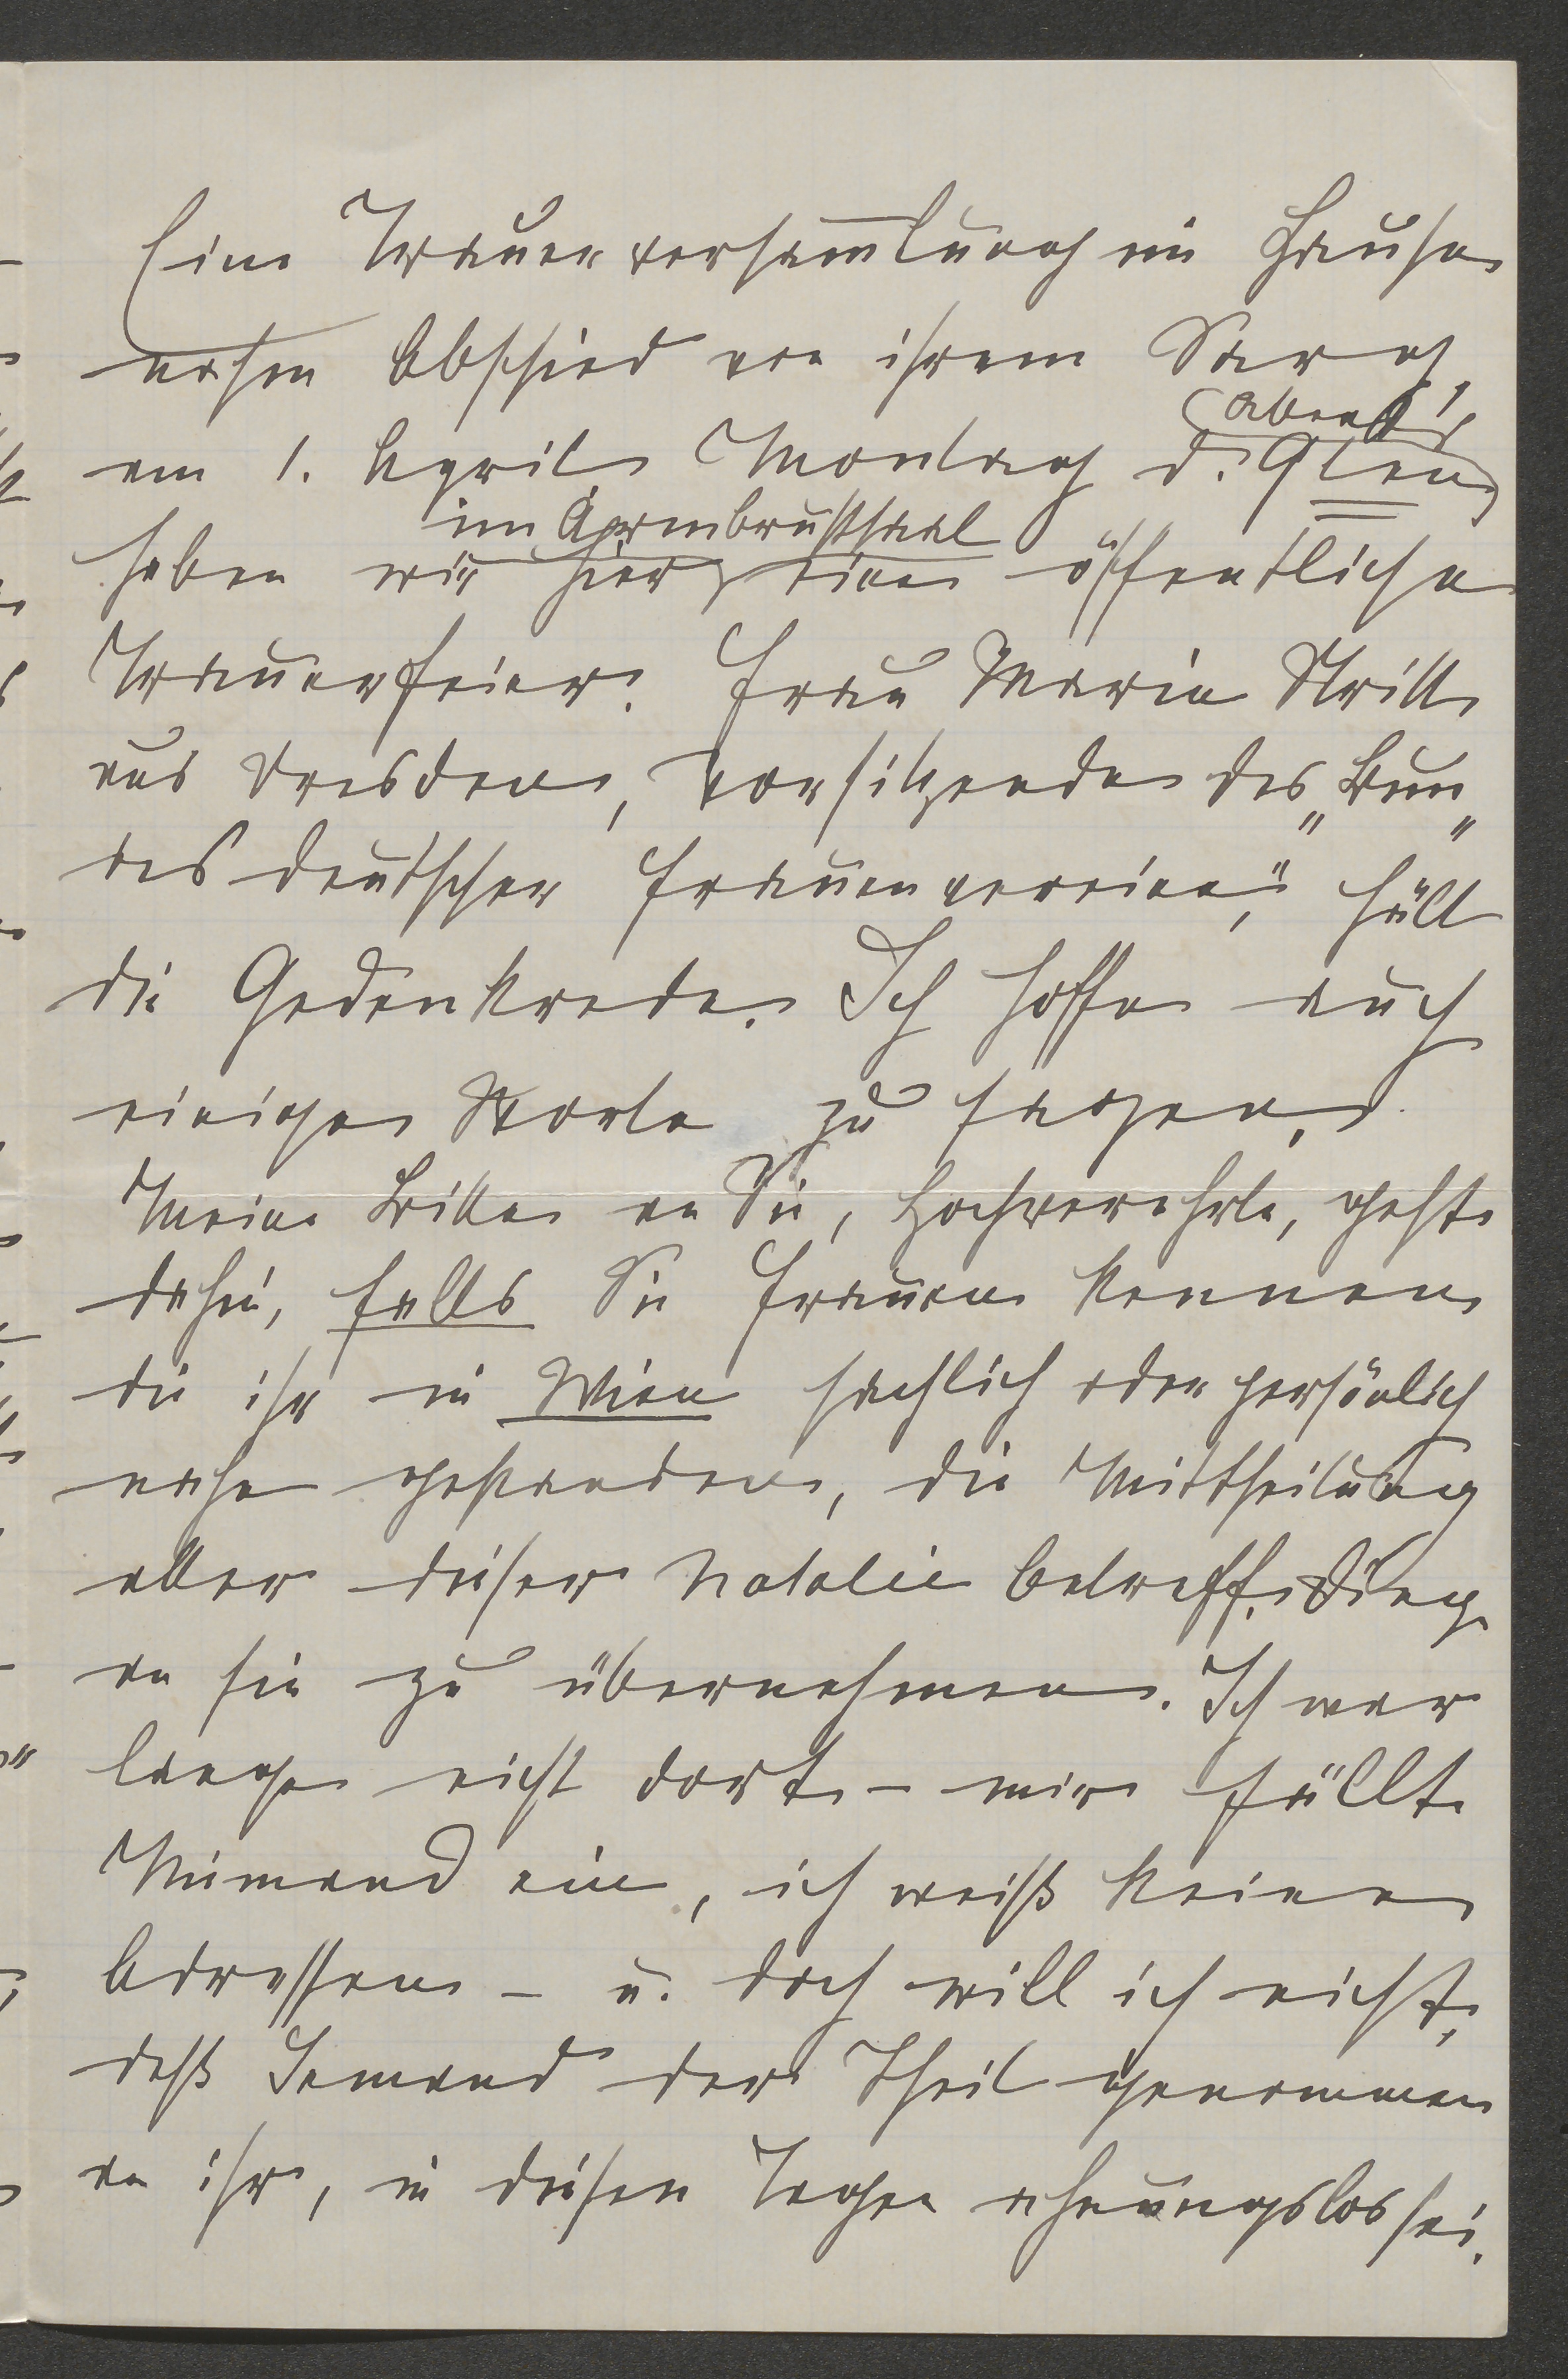 Eine Trauerversam̅lung im Hause
nahm Abschied von ihrem Sarg,
abends,
am 1. April, Montag d. 9ten
im Armbrustsaal
haben wir hier eine öffentliche
Trauerfeier. Frau Marie Stritt
aus Dresden, Vorsitzende des „Bun„
des deutscher Frauenvereine“, hält
die Gedenkrede. Ich hoffe auch
einige Worte zu sagen.
Meine Bitte an Sie, Hochverehrte, geht
dahin, falls Sie Frauen kennen
die ihr in Wien sachlich oder persönlich
nahe gestanden, die Mittheilung
aller dieser Natalie betreff. Dinge
an sie zu übernehmen. Ich war
lange nicht dort – mir fällt
Niemand ein, ich weiß keine
Adressen – u. doch will ich nicht,
daß Jemand der Theil genommen
an ihr, in diesen Tagen ahnungslos sei.